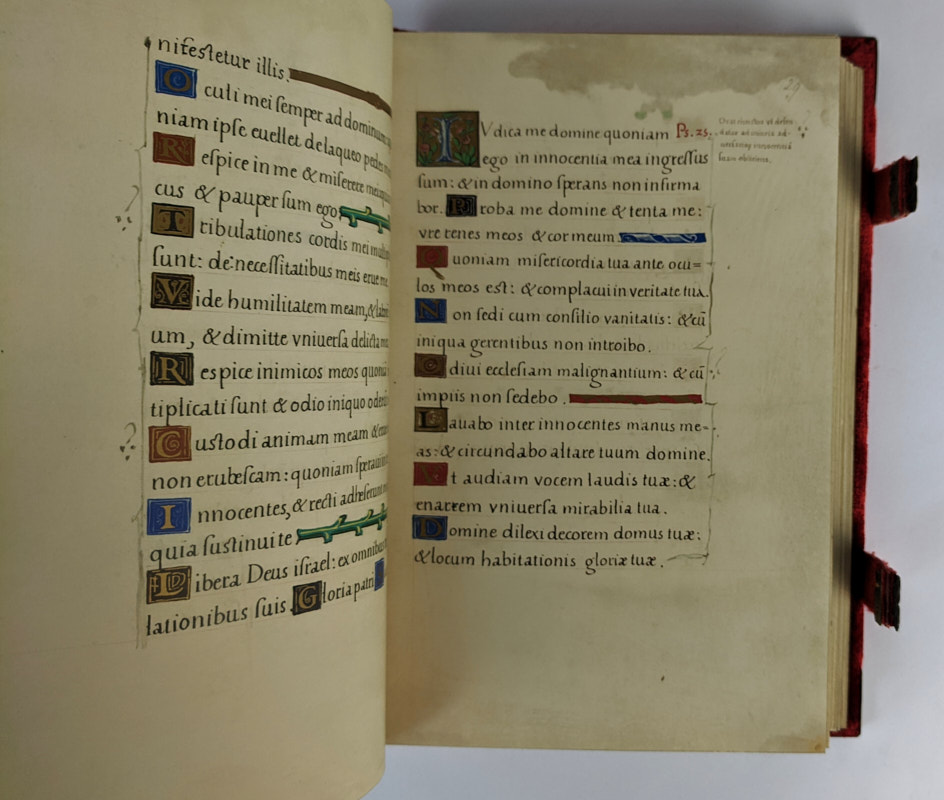 nifeſtetur illis.
Oculi mei ſemper ad dominum
niam ipſe euellet de laqueo pedes
Reſpice in me & miſerere mei: quia
cus & pauper ſum ego
Tribulationes cordis mei
ſunt: de neceſſitatibus meis erue me
Vide humilitatem meam, &
um, & dimitte vniuerſa delicta mea
Reſpice inimicos meos quoniam
tiplicati ſunt & odio iniquo
Cuſtodi animam meam &
non erubeſcam: quoniam ſperaui
Innocentes, & recti adheſerunt
quia ſuſtinui te
Libera Deus iſrael: ex omnibus
lationibus ſuis. Gloria patri
IVdica me domine quoniam Ps. 25.
ego in innocentia mea ingreſſus
ſum: & in domino ſperans non infirma
bor. Proba me domine & tenta me:
vre renes meos & cor meum
Quoniam miſericordia tua ante ocu=
los meos est: & complacui in veritate tua.
Non ſedi cum conſilio vanitatis: & cū
iniqua gerentibus non introibo.
Odiui eccleſiam malignantium: & cū
impiis non ſedebo.
Lauabo inter innocentes manus me-
as: & circundabo altare tuum domine.
Vt audiam vocem laudis tuæ: &
enarrem vniuerſa mirabilia tua.
Domine dilexi decorem domus tuæ:
& locum habitationis gloriæ tuæ.